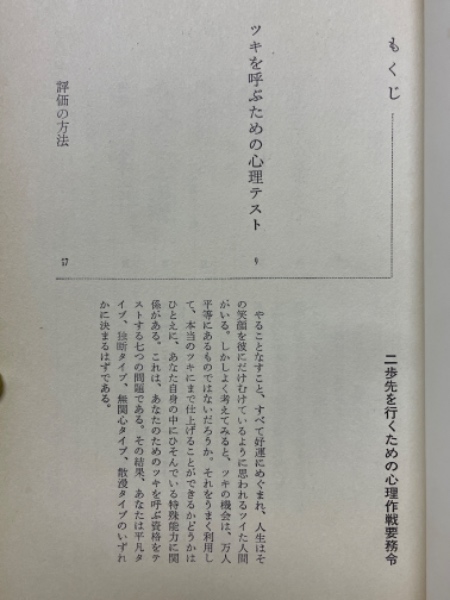 もくじ
ツキを呼ぶための心理テスト 9
評価の方法 17
二歩先を行くための心理作戦要務令
やることなすこと、すべて好運にめぐまれ、人生はそ
の笑顔を彼にだけむけているように思われるツイた人間
がいる。しかしよく考えてみると、ツキの機会は、万人
平等にあるものではないだろうか。それをうまく利用し
て、本当のツキにまで仕上げることができるかどうかは
ひとえに、あなた自身の中にひそんでいる特殊能力に関
係がある。これは、あなたのためのツキを呼ぶ資格をテ
ストする七つの問題である。その結果、あなたは平凡タ
イプ、独断タイプ、無関心タイプ、散漫タイプのいずれ
かに決まるはずである。